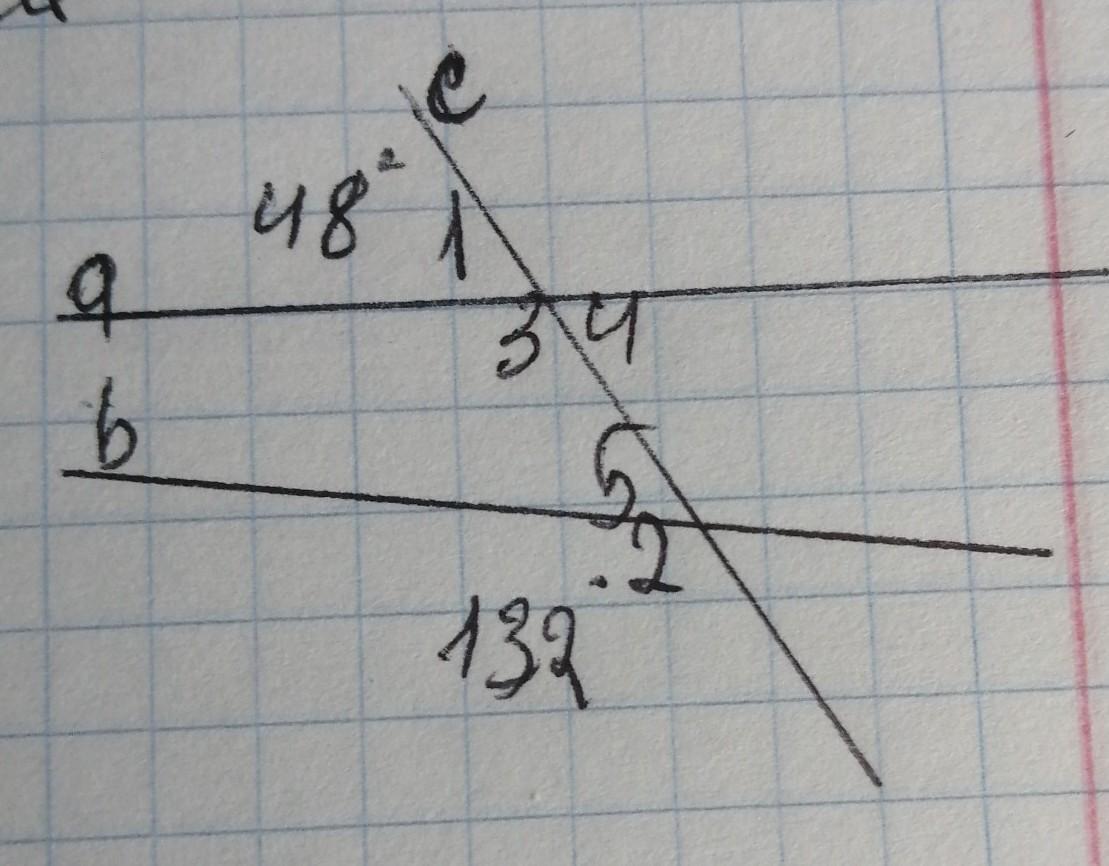 c
48°
1
a
3 4
b
5
2
132